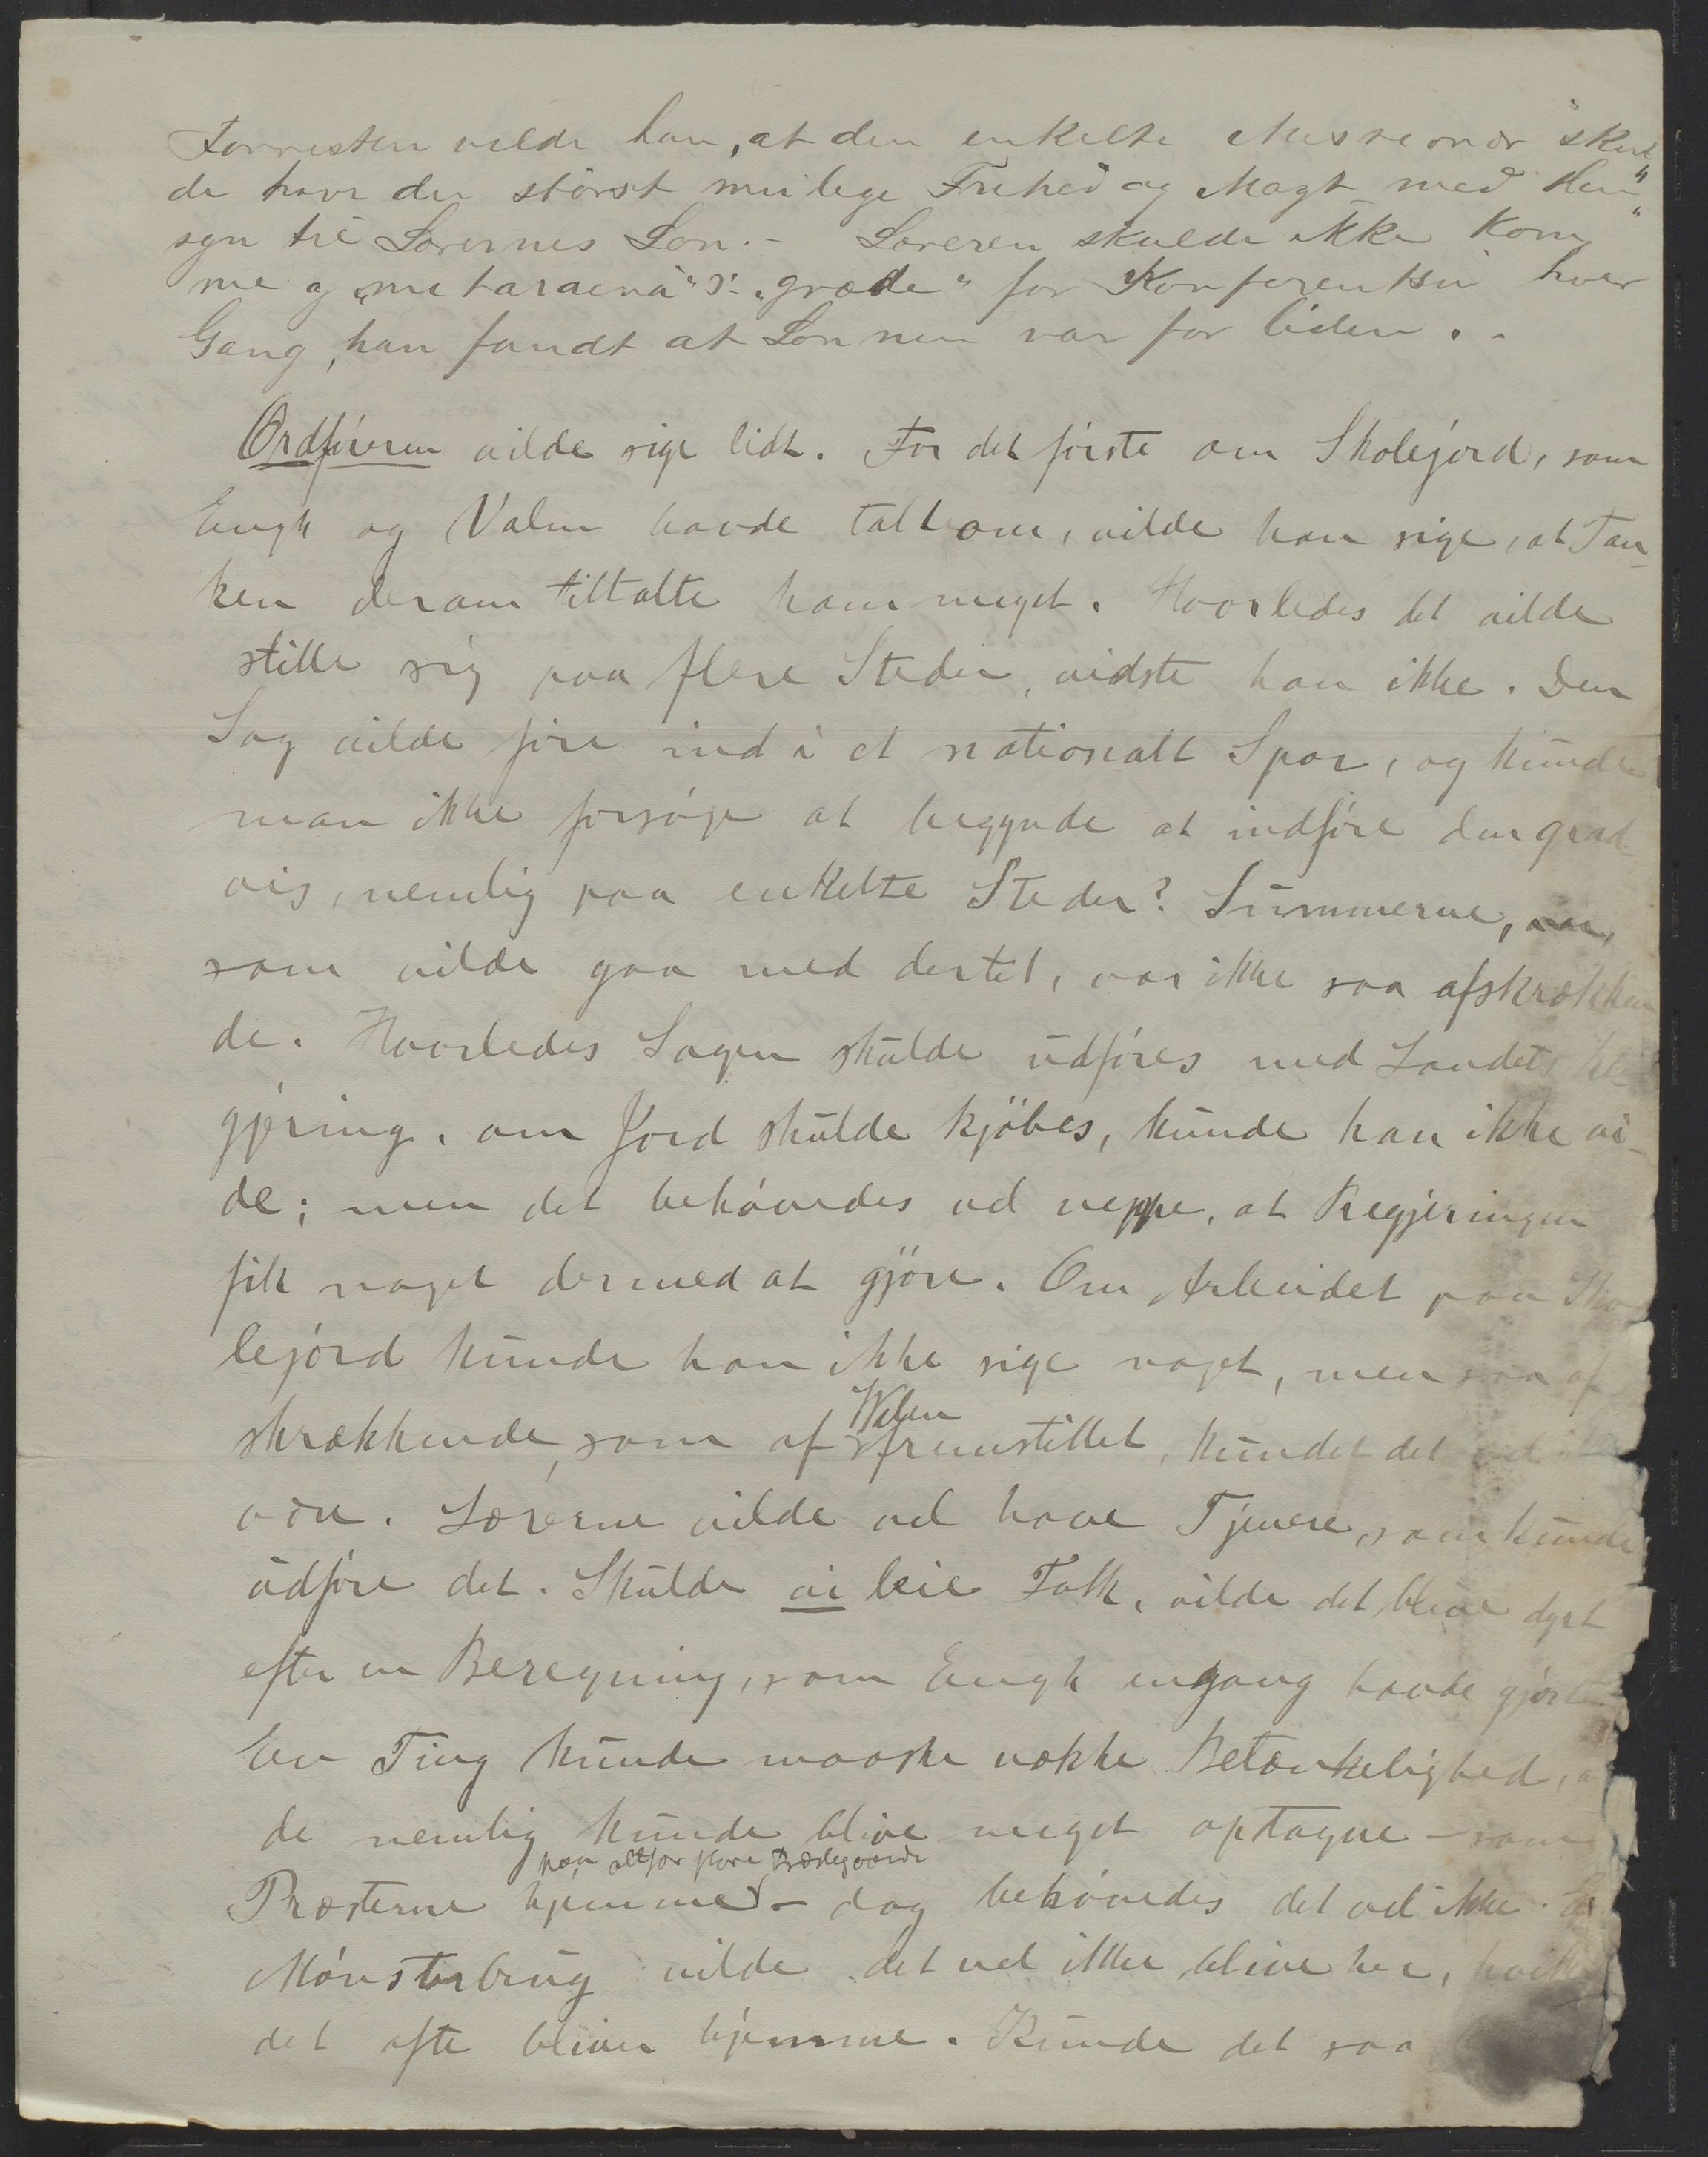 Forresten vilde han, at den enkelte Missionær skul„
de have den störst mulige Frihed og Magt med Hen„
syn til Lærernes Løn. – Læreren skulde ikke kom„
me og „mitaraina" ɔ: „græde" for Konferentsen hver
Gang, han fandt at Lønnen var for liden. –
Ordføreren vilde sige lidt. For det første om Skolejord, som
Engh og Valen havde talt om, vilde han sige, at Tan-
ken derom tiltalte ham meget. Hvorledes det vilde
stille sig paa flere Steder, vidste han ikke. Den
Sag vilde føre ind i et nationalt Spor, og kunde
man ikke forsøge at begynde at indføre den grad
vis, nemlig paa enkelte Steder? Summerne,
som vilde gaa med dertil, var ikke saa afskrækken
de. Hvorledes Sagen skulde udføres med Landets Re-
gjering, om Jord skulde kjöbes, kunde han ikke vi-
de; men det behøvedes vel neppe, at Regjeringen
fik noget dermed at gjöre. Om Arbeidet paa Sko
lejord kunde han ikke sige noget, men saa af
skrækkende, som af Walen fremstillet, kunde det vel ikke
være. Lærerne vilde vel have Tjenere, som kunde
udføre det. Skulde vi leie Folk, vilde det blive dyrt
efter en Beregning, som Engh engang havde gjort.
En Ting kunde maaske vække Betænkelighed, at
de nemlig kunde blive meget optagne – som
Præsterne hjemme paa altfor store Prædegaarde – dog behøvedes det vel ikke.
Mønsterbrug vilde det vel ikke blive her, hvilket
det ofte bliver hjemme. Kunde det saa